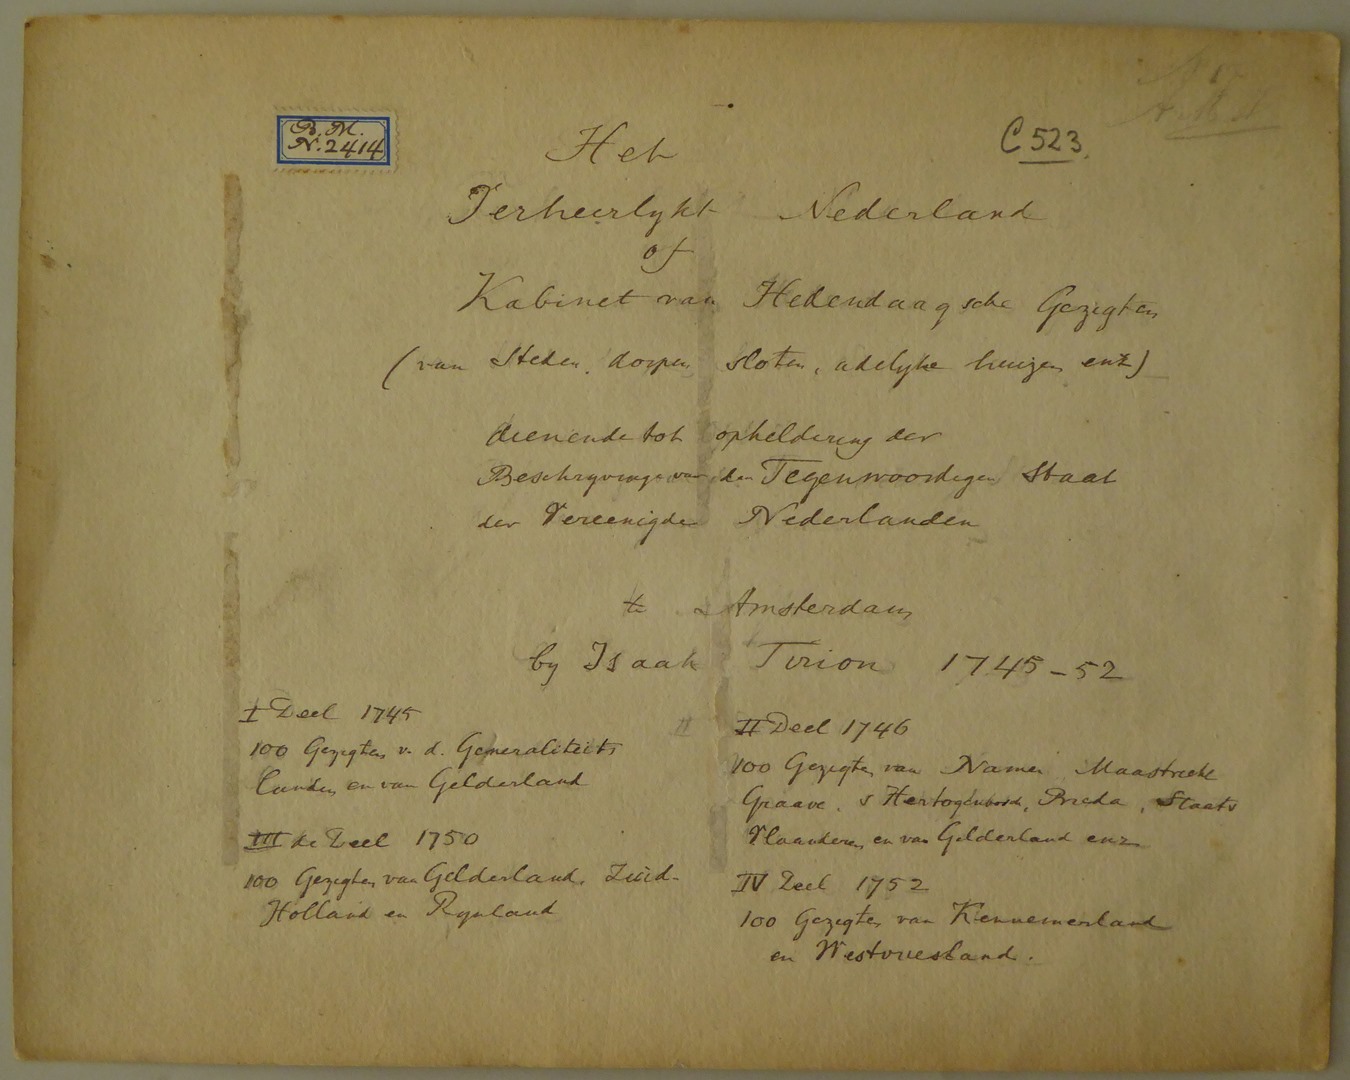 R. M.
N. 2414
C 523.
Het
Verheerlykt Nederland
of
Kabinet van Hedendaagsche Gezigten
(van Steden, dorpen sloten, adelyke huizen enz)
dienende tot opheldering der
Beschryvinge van den Tegenwoordigen Staat
der Vereenigde Nederlanden
te Amsterdam
by Isaak Tirion 1745-52
I Deel 1745
100 Gezigten v. d. Generaliteits
Landen en van Gelderland
III de Deel 1750
100 Gezigten van Gelderland, Zuid-
Holland en Rynland
II
II Deel 1746
100 Gezigten van Namen Maastricht
Graave, s Hertogenbosch, Breda, Staats
Vlaanderen en van Gelderland enz
IV Deel 1752
100 Gezigten van Kennemerland
en Westvriesland.